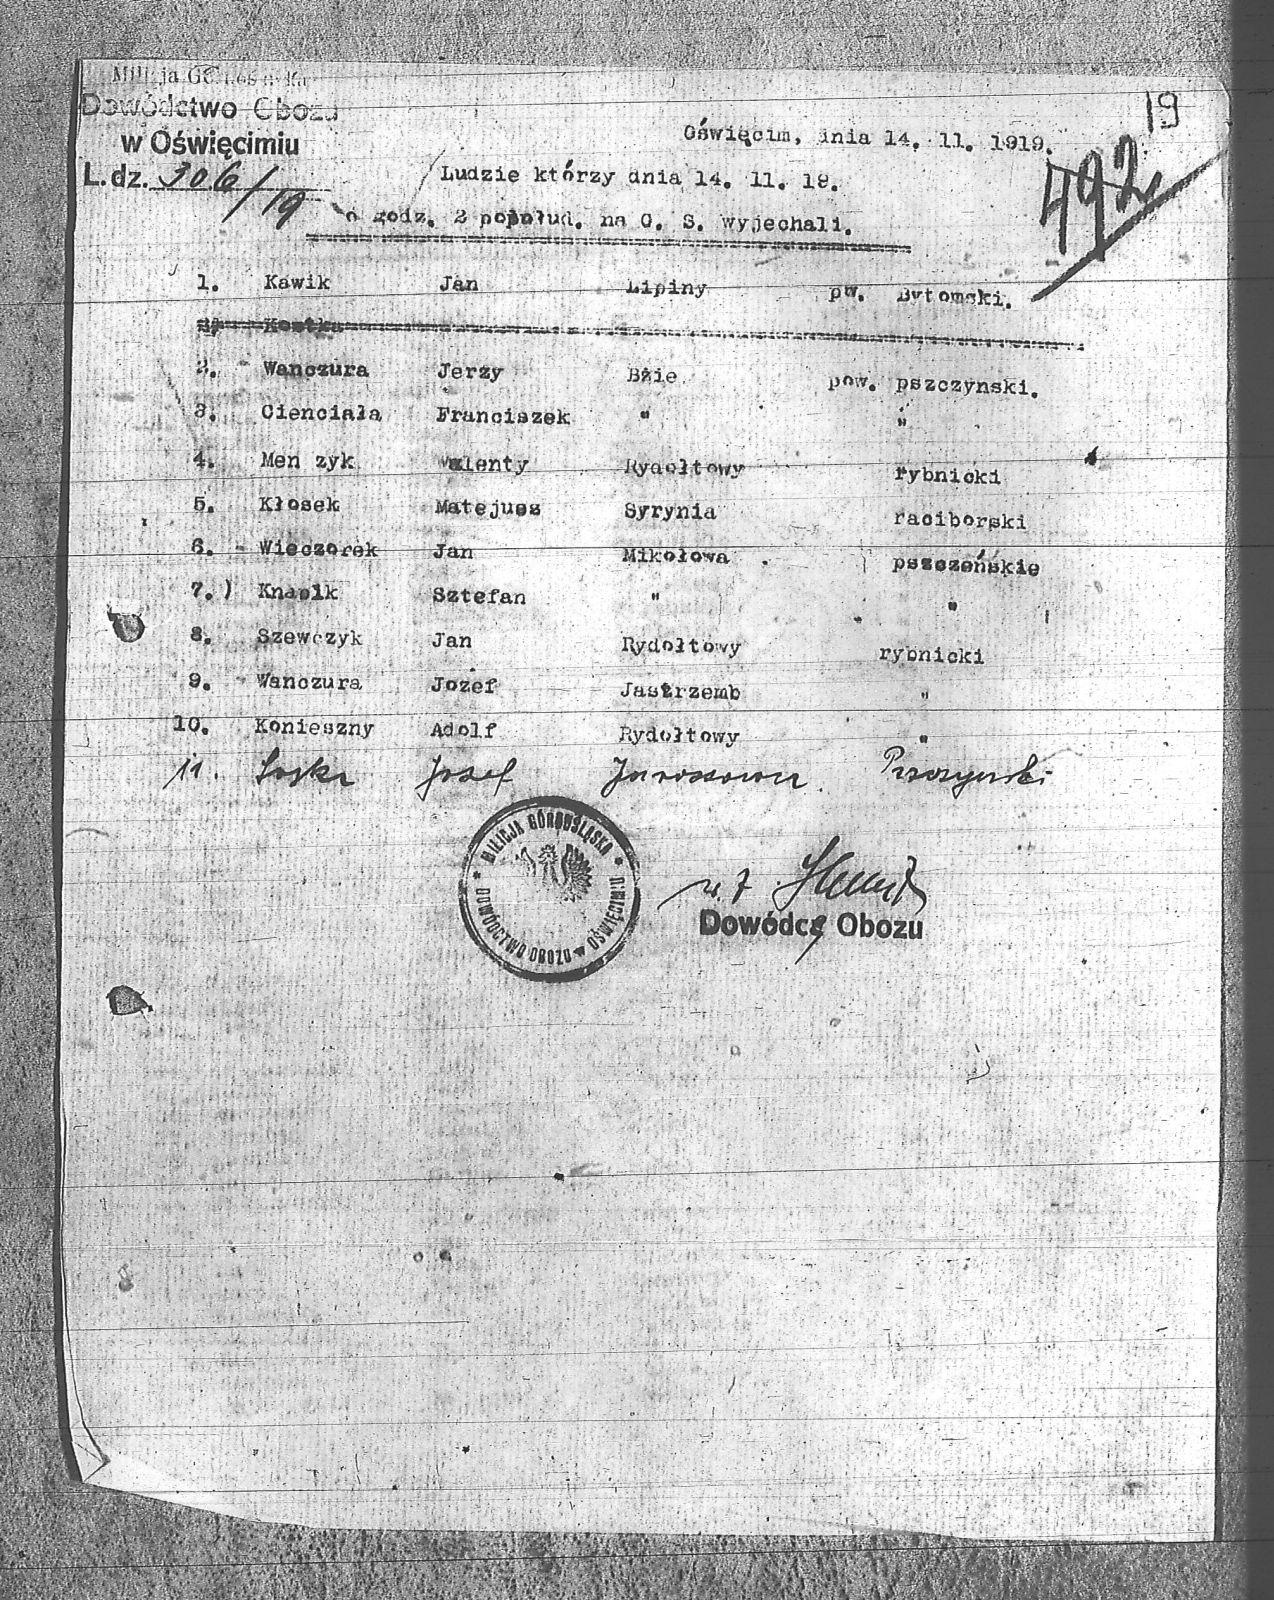 Milicja Górnośląska
Dowództwo Obozu
w Oświęcimiu
L. dz. 306/19
19
492
Oświęcim, dnia 14. 11. 1919.
Ludzie którzy dnia 14. 11. 19.
o godz. 2 popołud. na G. S. wyjechali.
1. Kawik Jan Lipiny pw. Bytomski.
2. Kostka
2. Wanczura Jerzy Bzie pow. pszczynski.
3. Cienciała Franciszek " "
4. Men zyk Walenty Rydołtowy rybnicki
5. Kłosek Matejusz Syrynia raciborski
6. Wieczorek Jan Mikołowa pszczeńskie
7.) Knasik Sztefan " "
8. Szewczyk Jan Rydołtowy rybnicki
9. Wanczura Jozef Jastrzemb "
10. Konieszny Adolf Rydołtowy "
11. Josef Pszczynski
MILICJA GÓRNOŚLĄSKA
DOWÓDZTWO OBOZU w OŚWIĘCIMIU
Dowódca Obozu